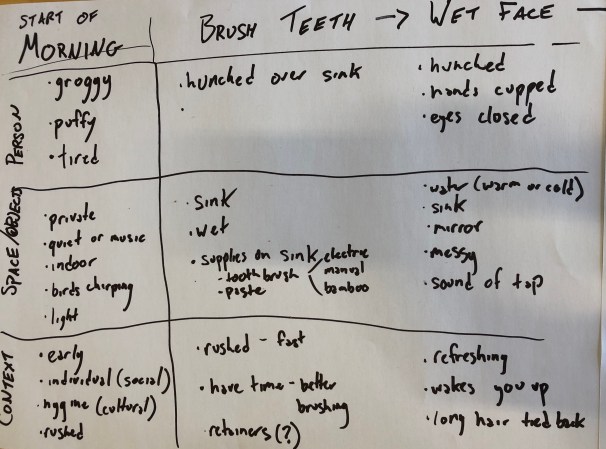 START OF MORNING
BRUSH TEETH → WET FACE —
PERSON
· groggy
· puffy
· tired
· hunched over sink
·
· hunched
· hands cupped
· eyes closed
SPACE/OBJECTS
· private
· quiet or music
· indoor
· birds chirping
· light
· sink
· wet
· supplies on sink
- toothbrush
- paste
electric
manual
bamboo
· water (warm or cold)
· sink
· mirror
· messy
· sound of tap
CONTEXT
· early
· individual (social)
· hygiene (cultural)
· rushed
· rushed - fast
· have time - better
brushing
retainers (?)
· refreshing
· wakes you up
· long hair tied back